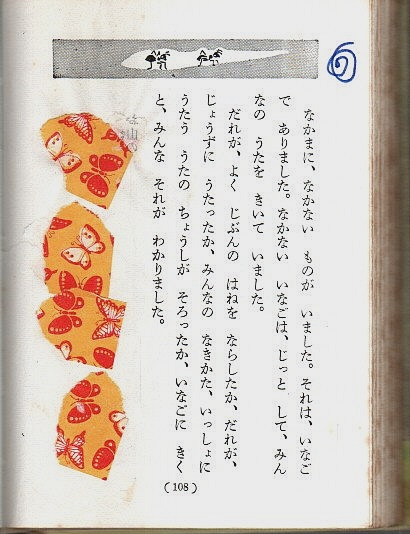 なかまに、なかない ものが いました。それは、いなご
で ありました。なかない いなごは、じっと して、みん
なの うたを きいて いました。
だれが、よく じぶんの はねを ならしたか、だれが、
じょうずに うたったか、みんなの なきかた、いっしょに
うたう うたの ちょうしが そろったか、いなごに きく
と、みんな それが わかりました。
(108)